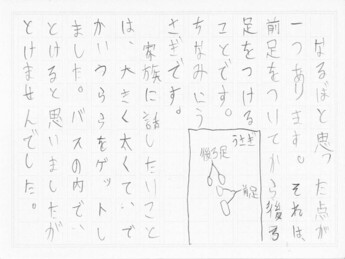 なるほどと思った点が
一つあります。それは、
前足をついてから後ろ
足をつける
ことです。
ちなみにう
さぎです。
うさぎ
後ろ足
前足
家族に話したいこと
は、大きく太くていで
かいつららをゲットし
ました。バスの内でい
とけると思いましたが
とけませんでした。